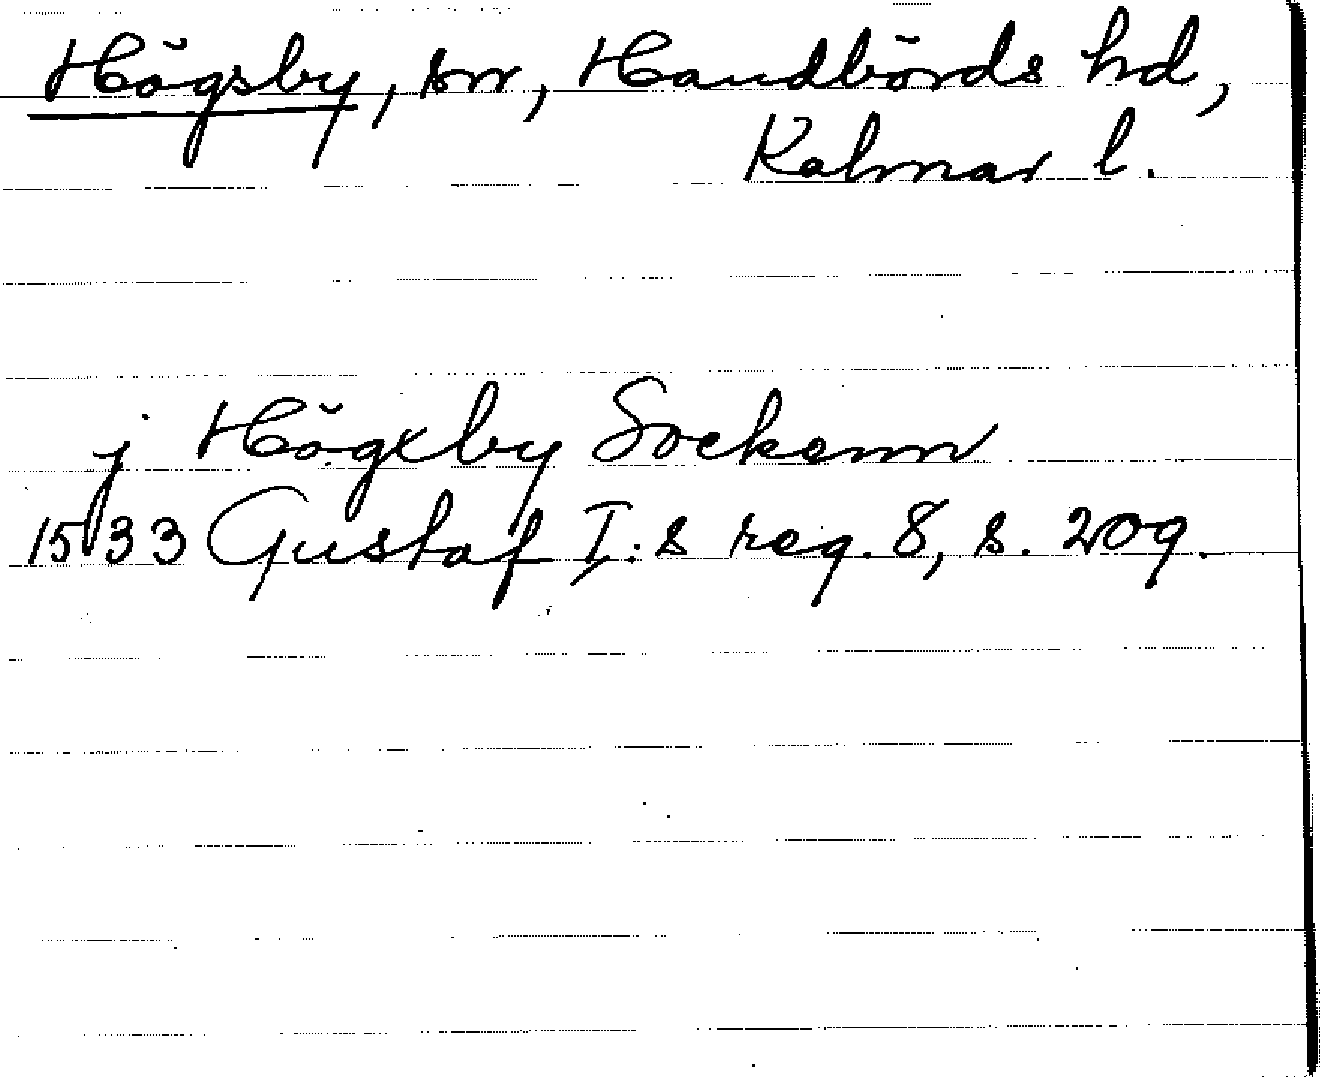 Högsby, sn, Handbörds hd,
Kalmar l.
j Högxby Sockenn
1533 Gustaf I:s reg. 8, s. 209.